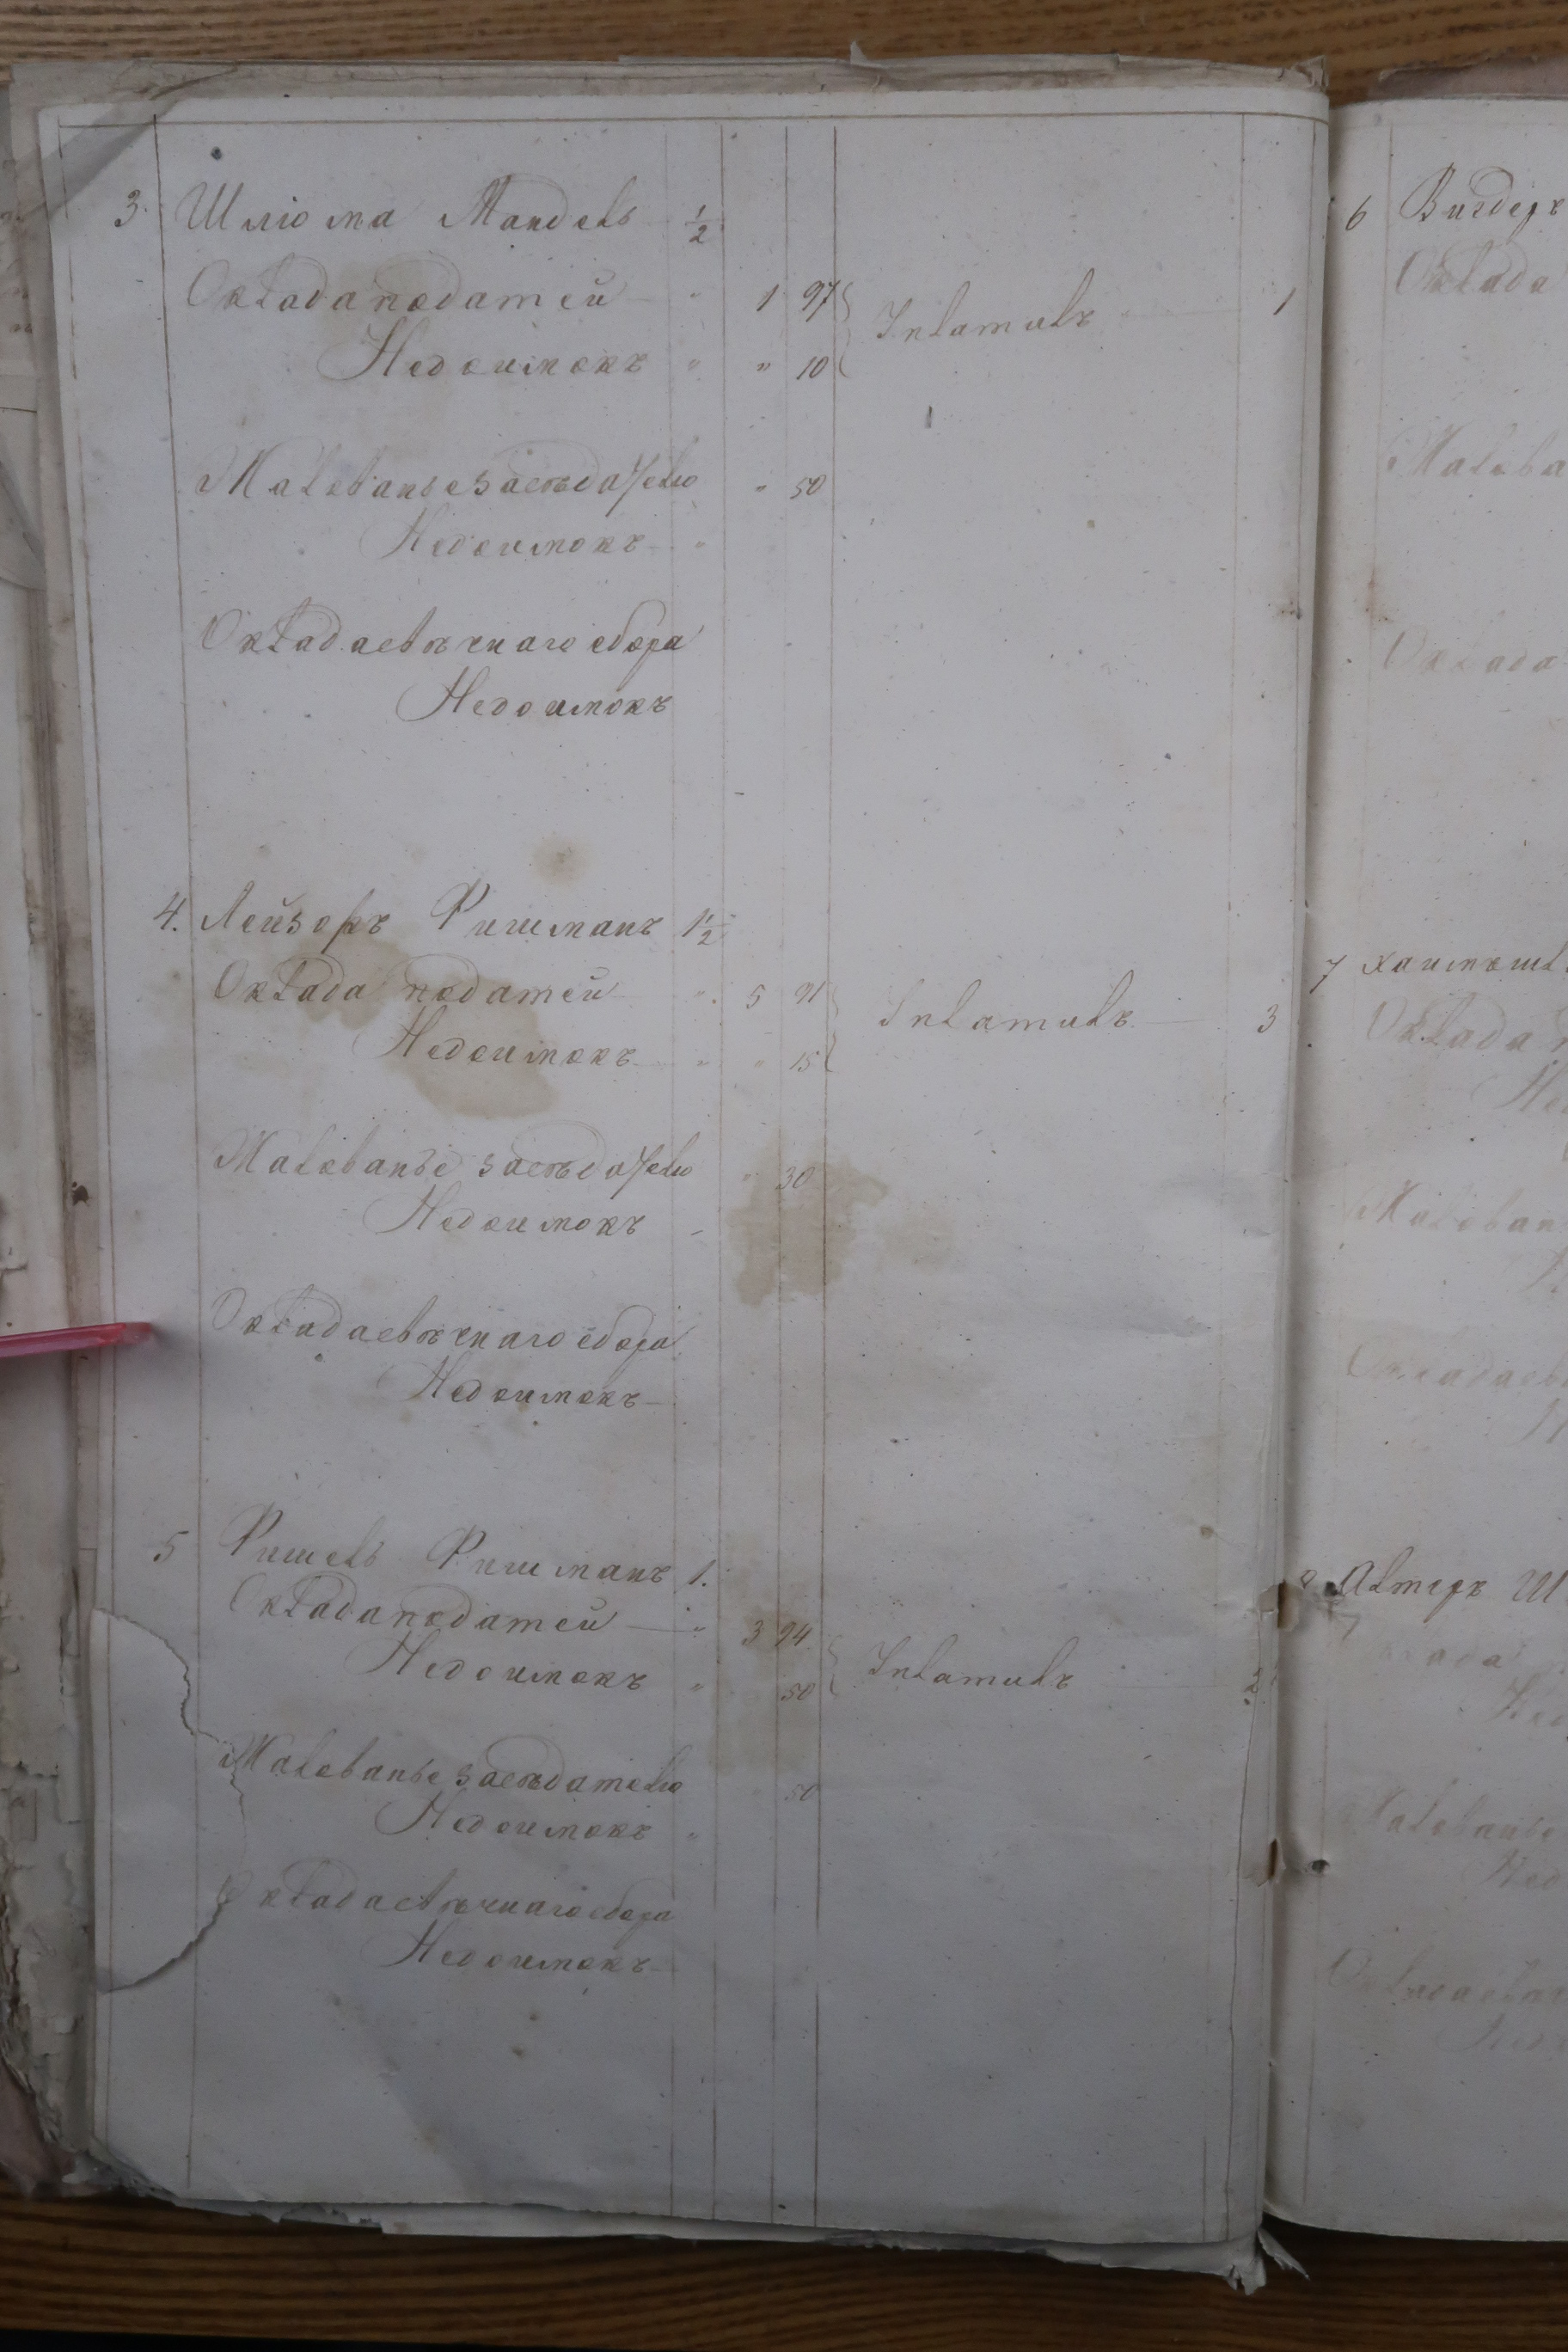 3. Шліома Мандель 1/2
Оклада податей " 1 97 Уплатилъ 1
Недоимокъ " " 10
Жалованье засѣдателю " 50
Недоимокъ "
Оклада свѣчнаго сбора
Недоимокъ
4. Лейзоръ Фишманъ 1 1/2
Оклада податей " 5 91 Уплатилъ 3
Недоимокъ " " 15
Жалованье засѣдателю " 30
Недоимокъ
Оклада свѣчнаго сбора
Недоимокъ
5 Фишель Фишманъ 1.
Оклада податей " 3 94 Уплатилъ 2
Недоимокъ " 50
Жалованье засѣдателю 50
Недоимокъ "
Оклада свѣчнаго сбора
Недоимокъ
6 Вигдеръ
Оклада
Жалова
Оклада
7
Оклада
Не
Жалован
Оклада
Алтеръ Ш
клада
Нед
Жалованье
Нед